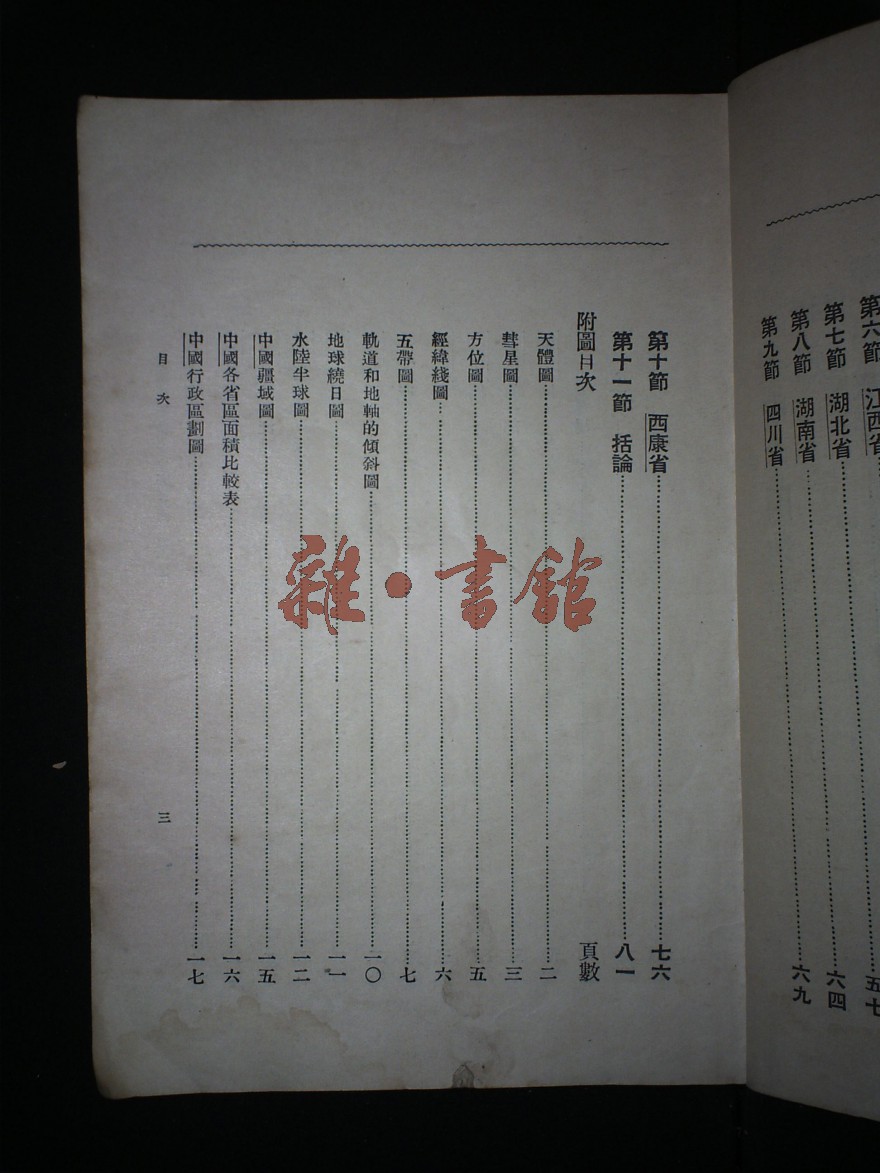 第六節　江西省……五七
第七節　湖北省……六四
第八節　湖南省……
第九節　四川省……六九
第十節　西康省……七六
第十一節　括論……八一
附圖目次　頁數
天體圖……二
彗星圖……三
方位圖……五
經緯綫圖……六
五帶圖……七
軌道和地軸的傾斜圖……一〇
地球繞日圖……一一
水陸半球圖……一二
中國疆域圖……一五
中國各省區面積比較表……一六
中國行政區劃圖……一七
目次　三
雜·書館